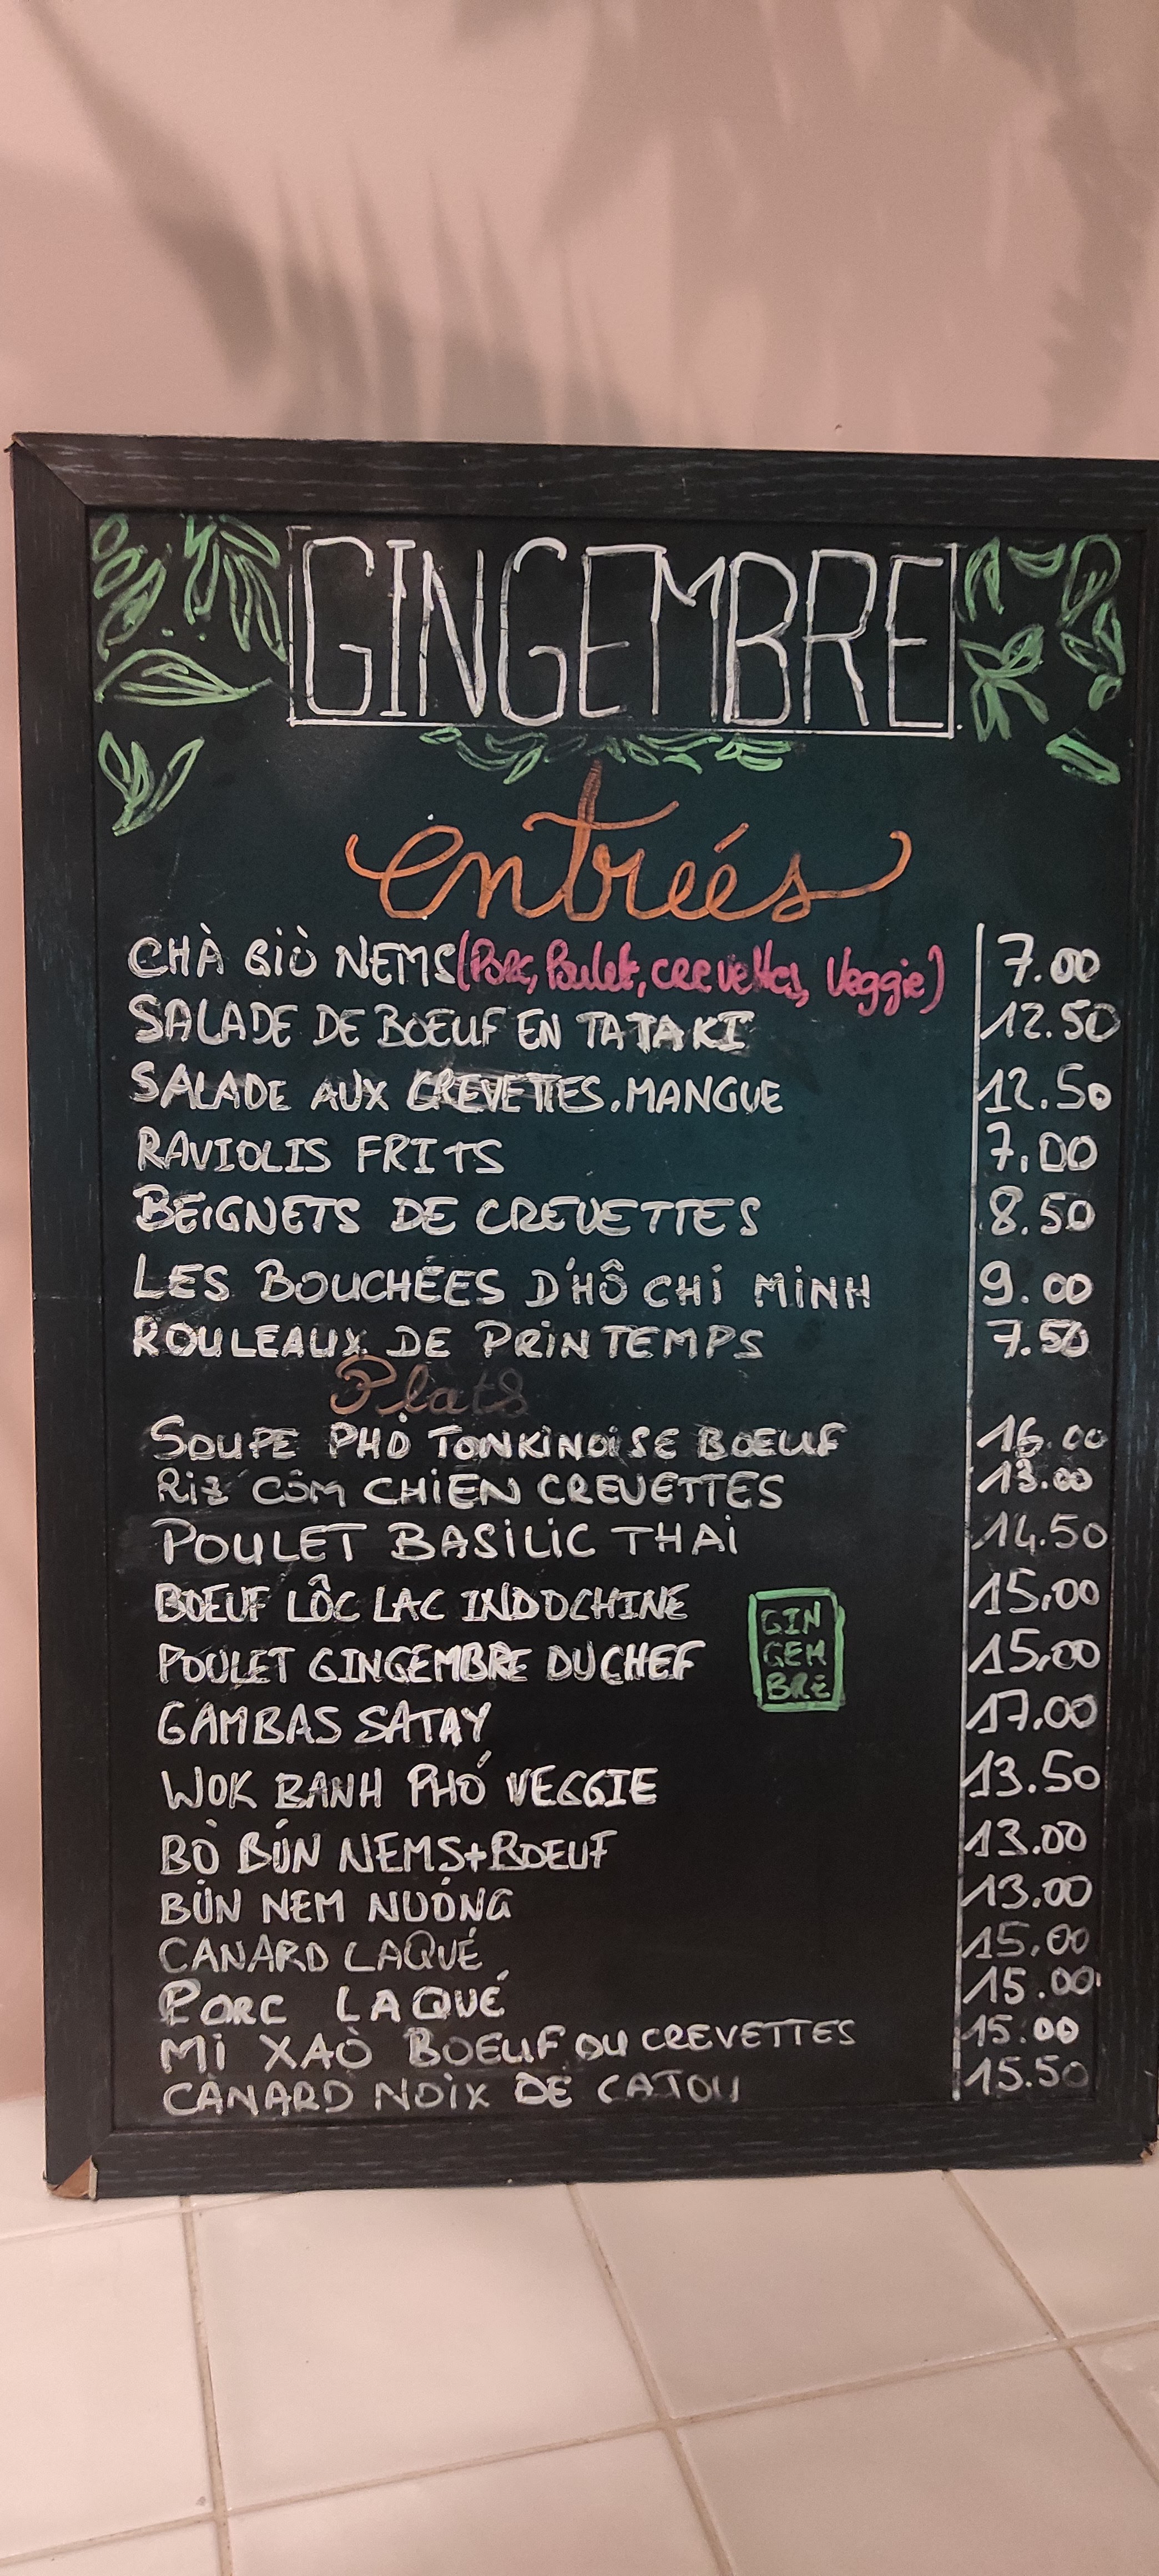 GINGEMBRE
entreés
CHÀ GIÒ NEMS (Porc, Poulet, crevettes, Veggie) 7.00
SALADE DE BOEUF EN TATAKI 12.50
SALADE AUX CREVETTES.MANGUE 12.50
RAVIOLIS FRITS 7.00
BEIGNETS DE CREVETTES 8.50
LES BOUCHÉES D'HÔ CHÍ MINH 9.00
ROULEAUX DE PRINTEMPS 7.50
Plats
SOUPE PHỞ TONKINOISE BOEUF 16.00
RIZ CÖM CHIEN CREVETTES 13.00
POULET BASILIC THAI 14.50
BOEUF LÔC LAC INDOCHINE 15.00
POULET GINGEMBRE DU CHEF 15.00
GIN
GEM
BRE
GAMBAS SATAY 17.00
WOK BANH PHÓ VEGGIE 13.50
BÒ BÚN NEMS+BOEUF 13.00
BÚN NEM NUÓNG 13.00
CANARD LAQUÉ 15.00
PORC LAQUÉ 15.00
MI XAÒ BOEUF OU CREVETTES 15.00
CANARD NOIX DE CAJOU 15.50